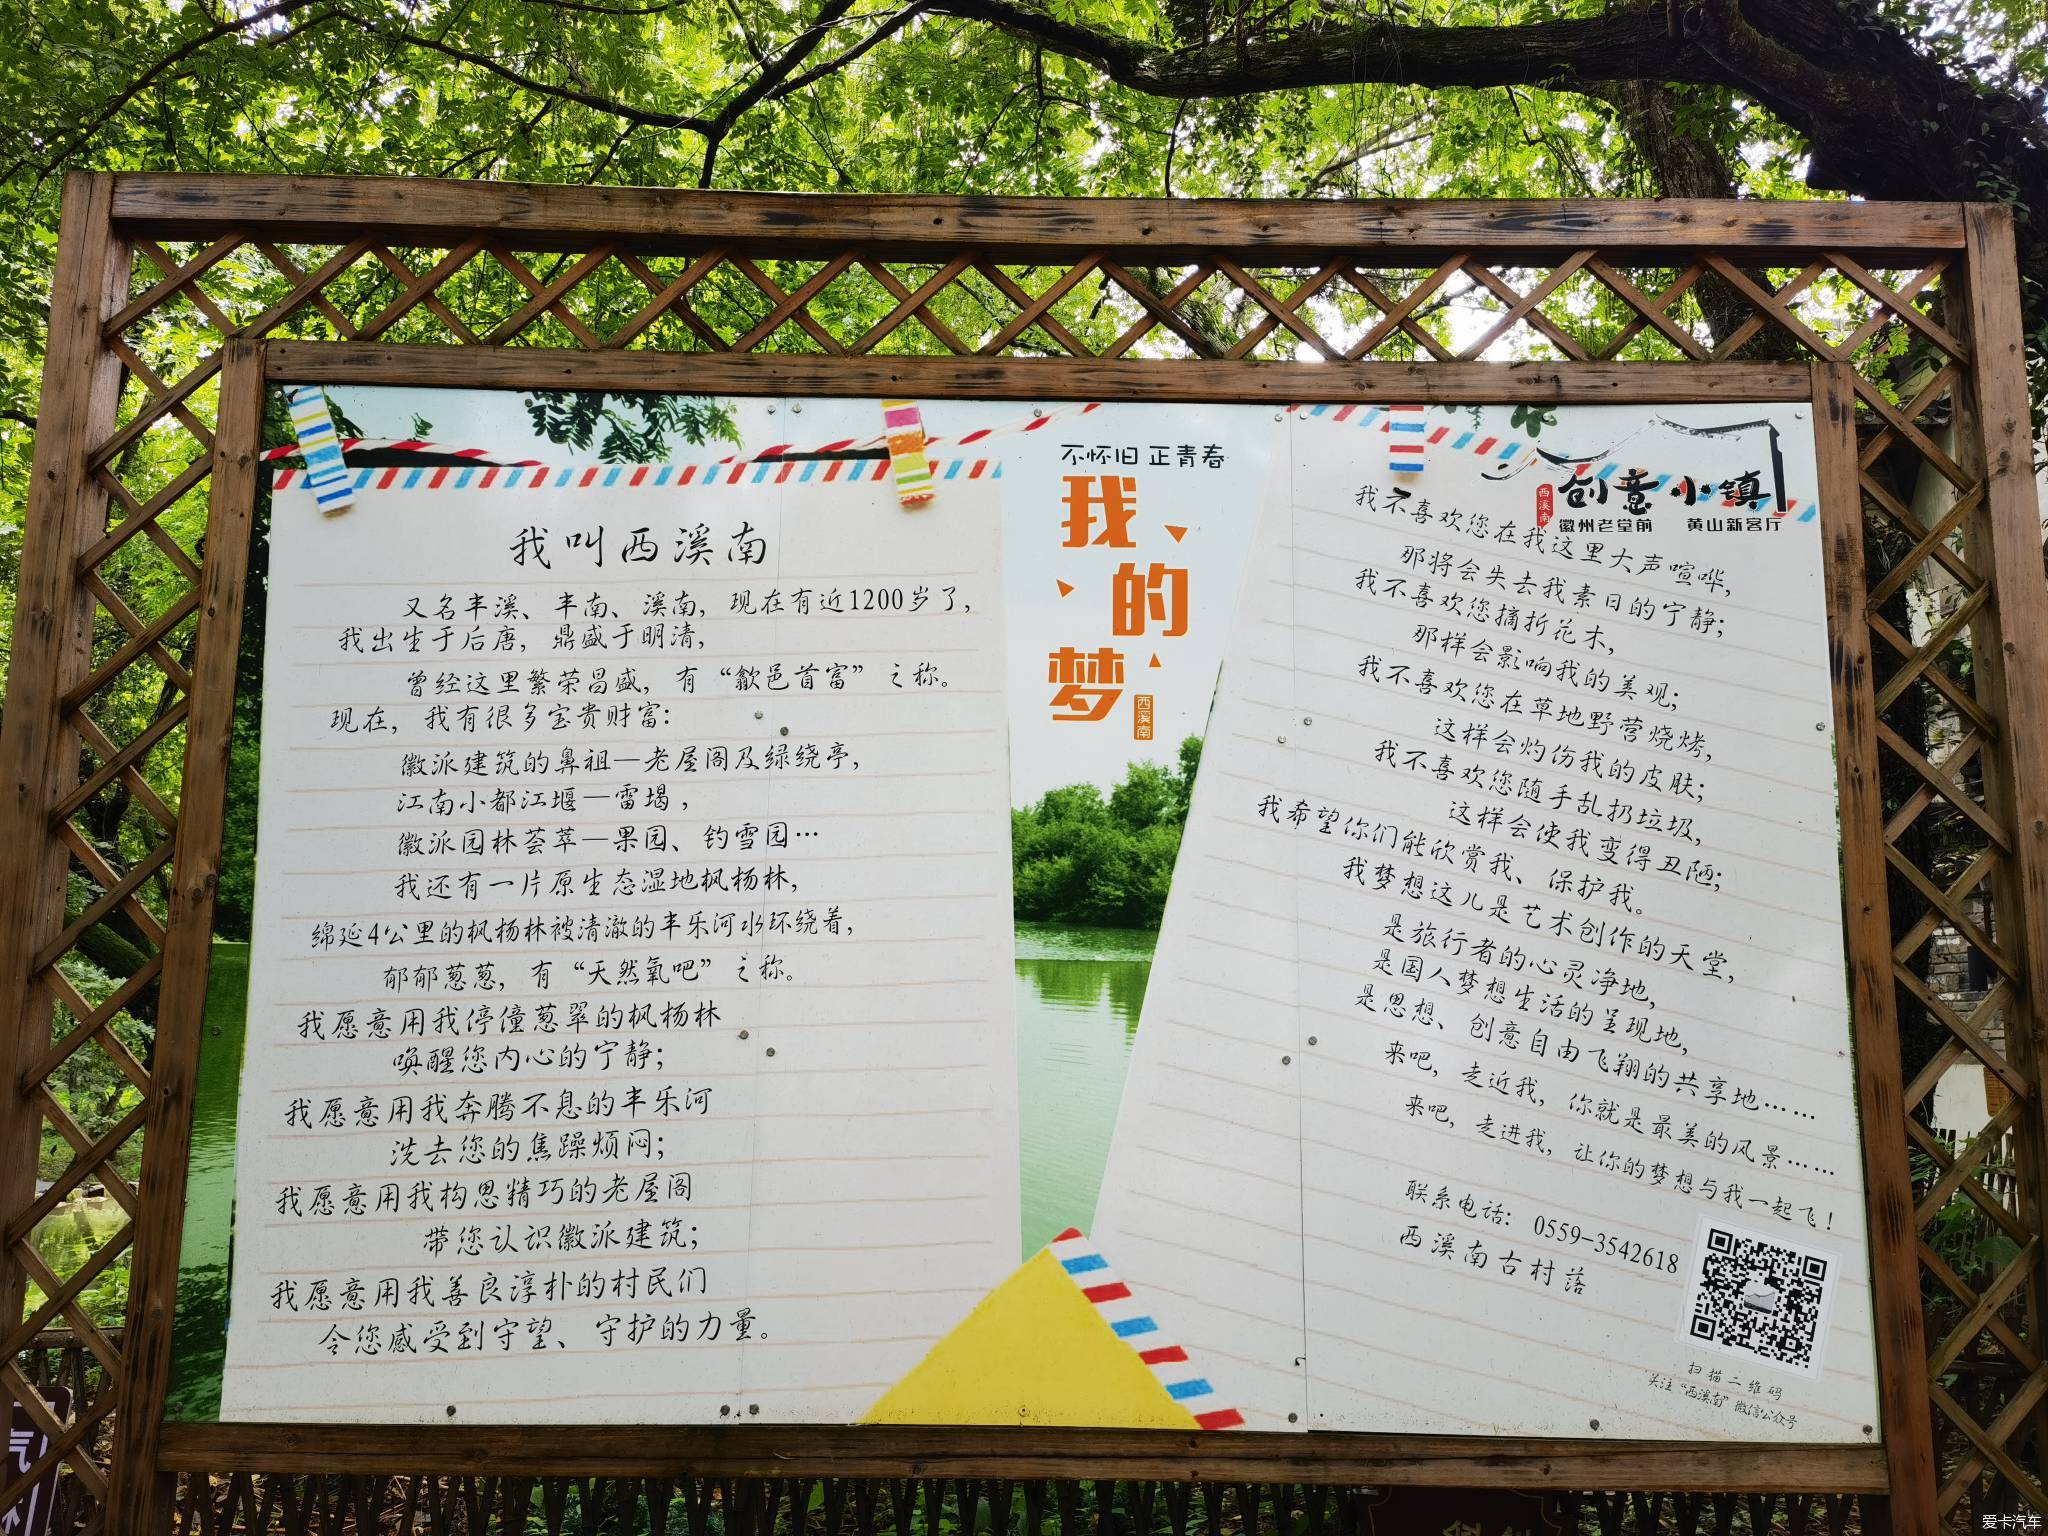 我叫西溪南
又名丰溪、丰南、溪南，现在有近1200岁了，
我出生于后唐，鼎盛于明清，
曾经这里繁荣昌盛，有“歙邑首富”之称。
现在，我有很多宝贵财富：
徽派建筑的鼻祖—老屋阁及绿绕亭，
江南小都江堰—雷堨，
徽派园林荟萃—果园、钓雪园…
我还有一片原生态湿地枫杨林，
绵延4公里的枫杨林被清澈的丰乐河水环绕着，
郁郁葱葱，有“天然氧吧”之称。
我愿意用我停僮葱翠的枫杨林
唤醒您内心的宁静；
我愿意用我奔腾不息的丰乐河
洗去您的焦躁烦闷；
我愿意用我构思精巧的老屋阁
带您认识徽派建筑；
我愿意用我善良淳朴的村民们
令您感受到守望、守护的力量。
不怀旧 正青春
我的梦
西溪南
西溪南
创意小镇
徽州老堂前 黄山新客厅
我不喜欢您在我这里大声喧哗，
那将会失去我素日的宁静；
我不喜欢您摘折花木，
那样会影响我的美观；
我不喜欢您在草地野营烧烤，
这样会灼伤我的皮肤；
我不喜欢您随手乱扔垃圾，
这样会使我变得丑陋；
我希望你们能欣赏我、保护我。
我梦想这儿是艺术创作的天堂，
是旅行者的心灵净地，
是国人梦想生活的呈现地，
是思想、创意自由飞翔的共享地……
来吧，走近我，你就是最美的风景……
来吧，走进我，让你的梦想与我一起飞！
联系电话：0559-3542618
西溪南古村落
扫描二维码
关注“西溪南”微信公众号
气
爱卡汽车